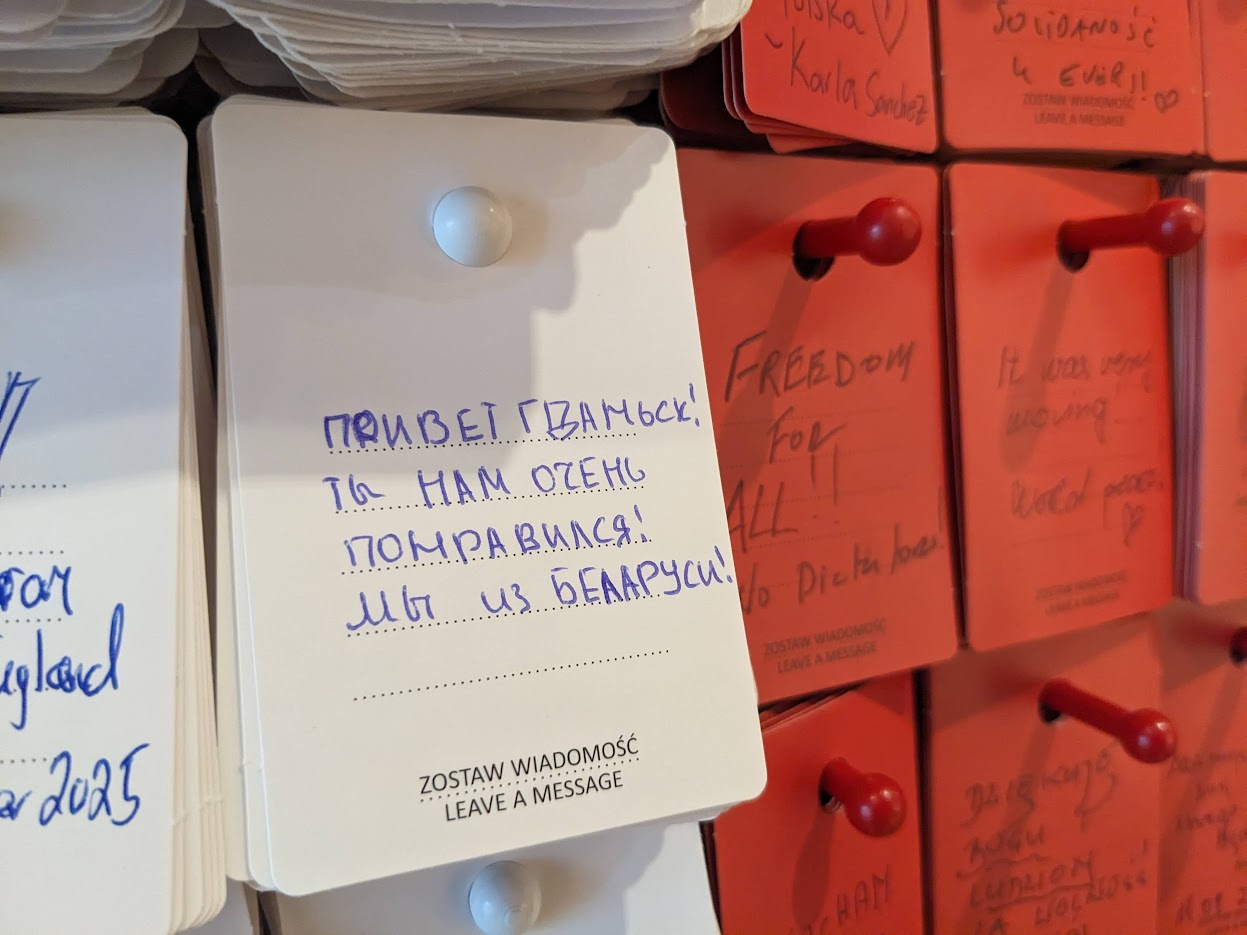 Polska
Karla Sanchez
SOLIDANOŚĆ
4 EVER!!
ZOSTAW WIADOMOŚĆ
LEAVE A MESSAGE
2025
ПРИВЕТ ГДАНЬСК!
ТЫ НАМ ОЧЕНЬ
ПОНРАВИЛСЯ!
МЫ ИЗ БЕЛАРУСИ!
ZOSTAW WIADOMOŚĆ
LEAVE A MESSAGE
FREEDOM
FOR
ALL!!
No
ZOSTAW WIADOMOŚĆ
LEAVE A MESSAGE
It was very
moving!
World peace
ZOSTAW WIADOMOŚĆ
LEAVE A MESSAGE
DZIĘKUJĘ
BOGU
LUDZIOM
ZA WOLNOŚĆ!